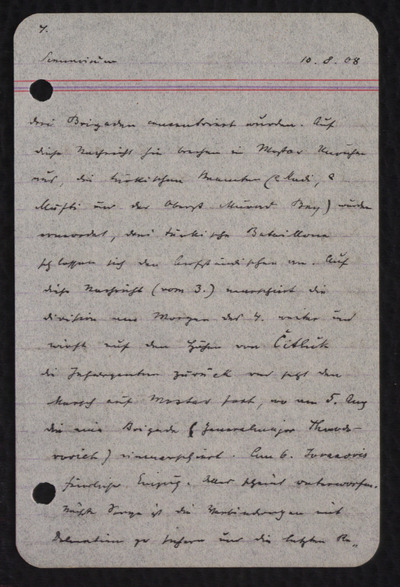 7.
10. 8. 08
drei Brigaden concentriert wurden. Auf
diese Nachricht hin brechen in Mostar Unruhen
aus, die türkischen Beamten (2 Kadi, 2
Mufti und der Oberst Bey) wurden
ermordet, drei türkische Bataillone
schlossen sich den Aufständischen an. Auf
diese Nachricht (vom 3.) marschiert die
Division am Morgen des 4. weiter und
wirft auf den Höhen von Čitluk
die Insurgenten zurück und setzt den
Marsch auf Mostar fort, wo am 5. Aug
die eine Brigade (Generalmajor Theodorovich)
einmarschiert. Am 6.
feierlicher Einzug. Alles scheint unterworfen.
Nächste Sorge ist die Verbindungen mit
Dalmatien zu sichern und die letzten